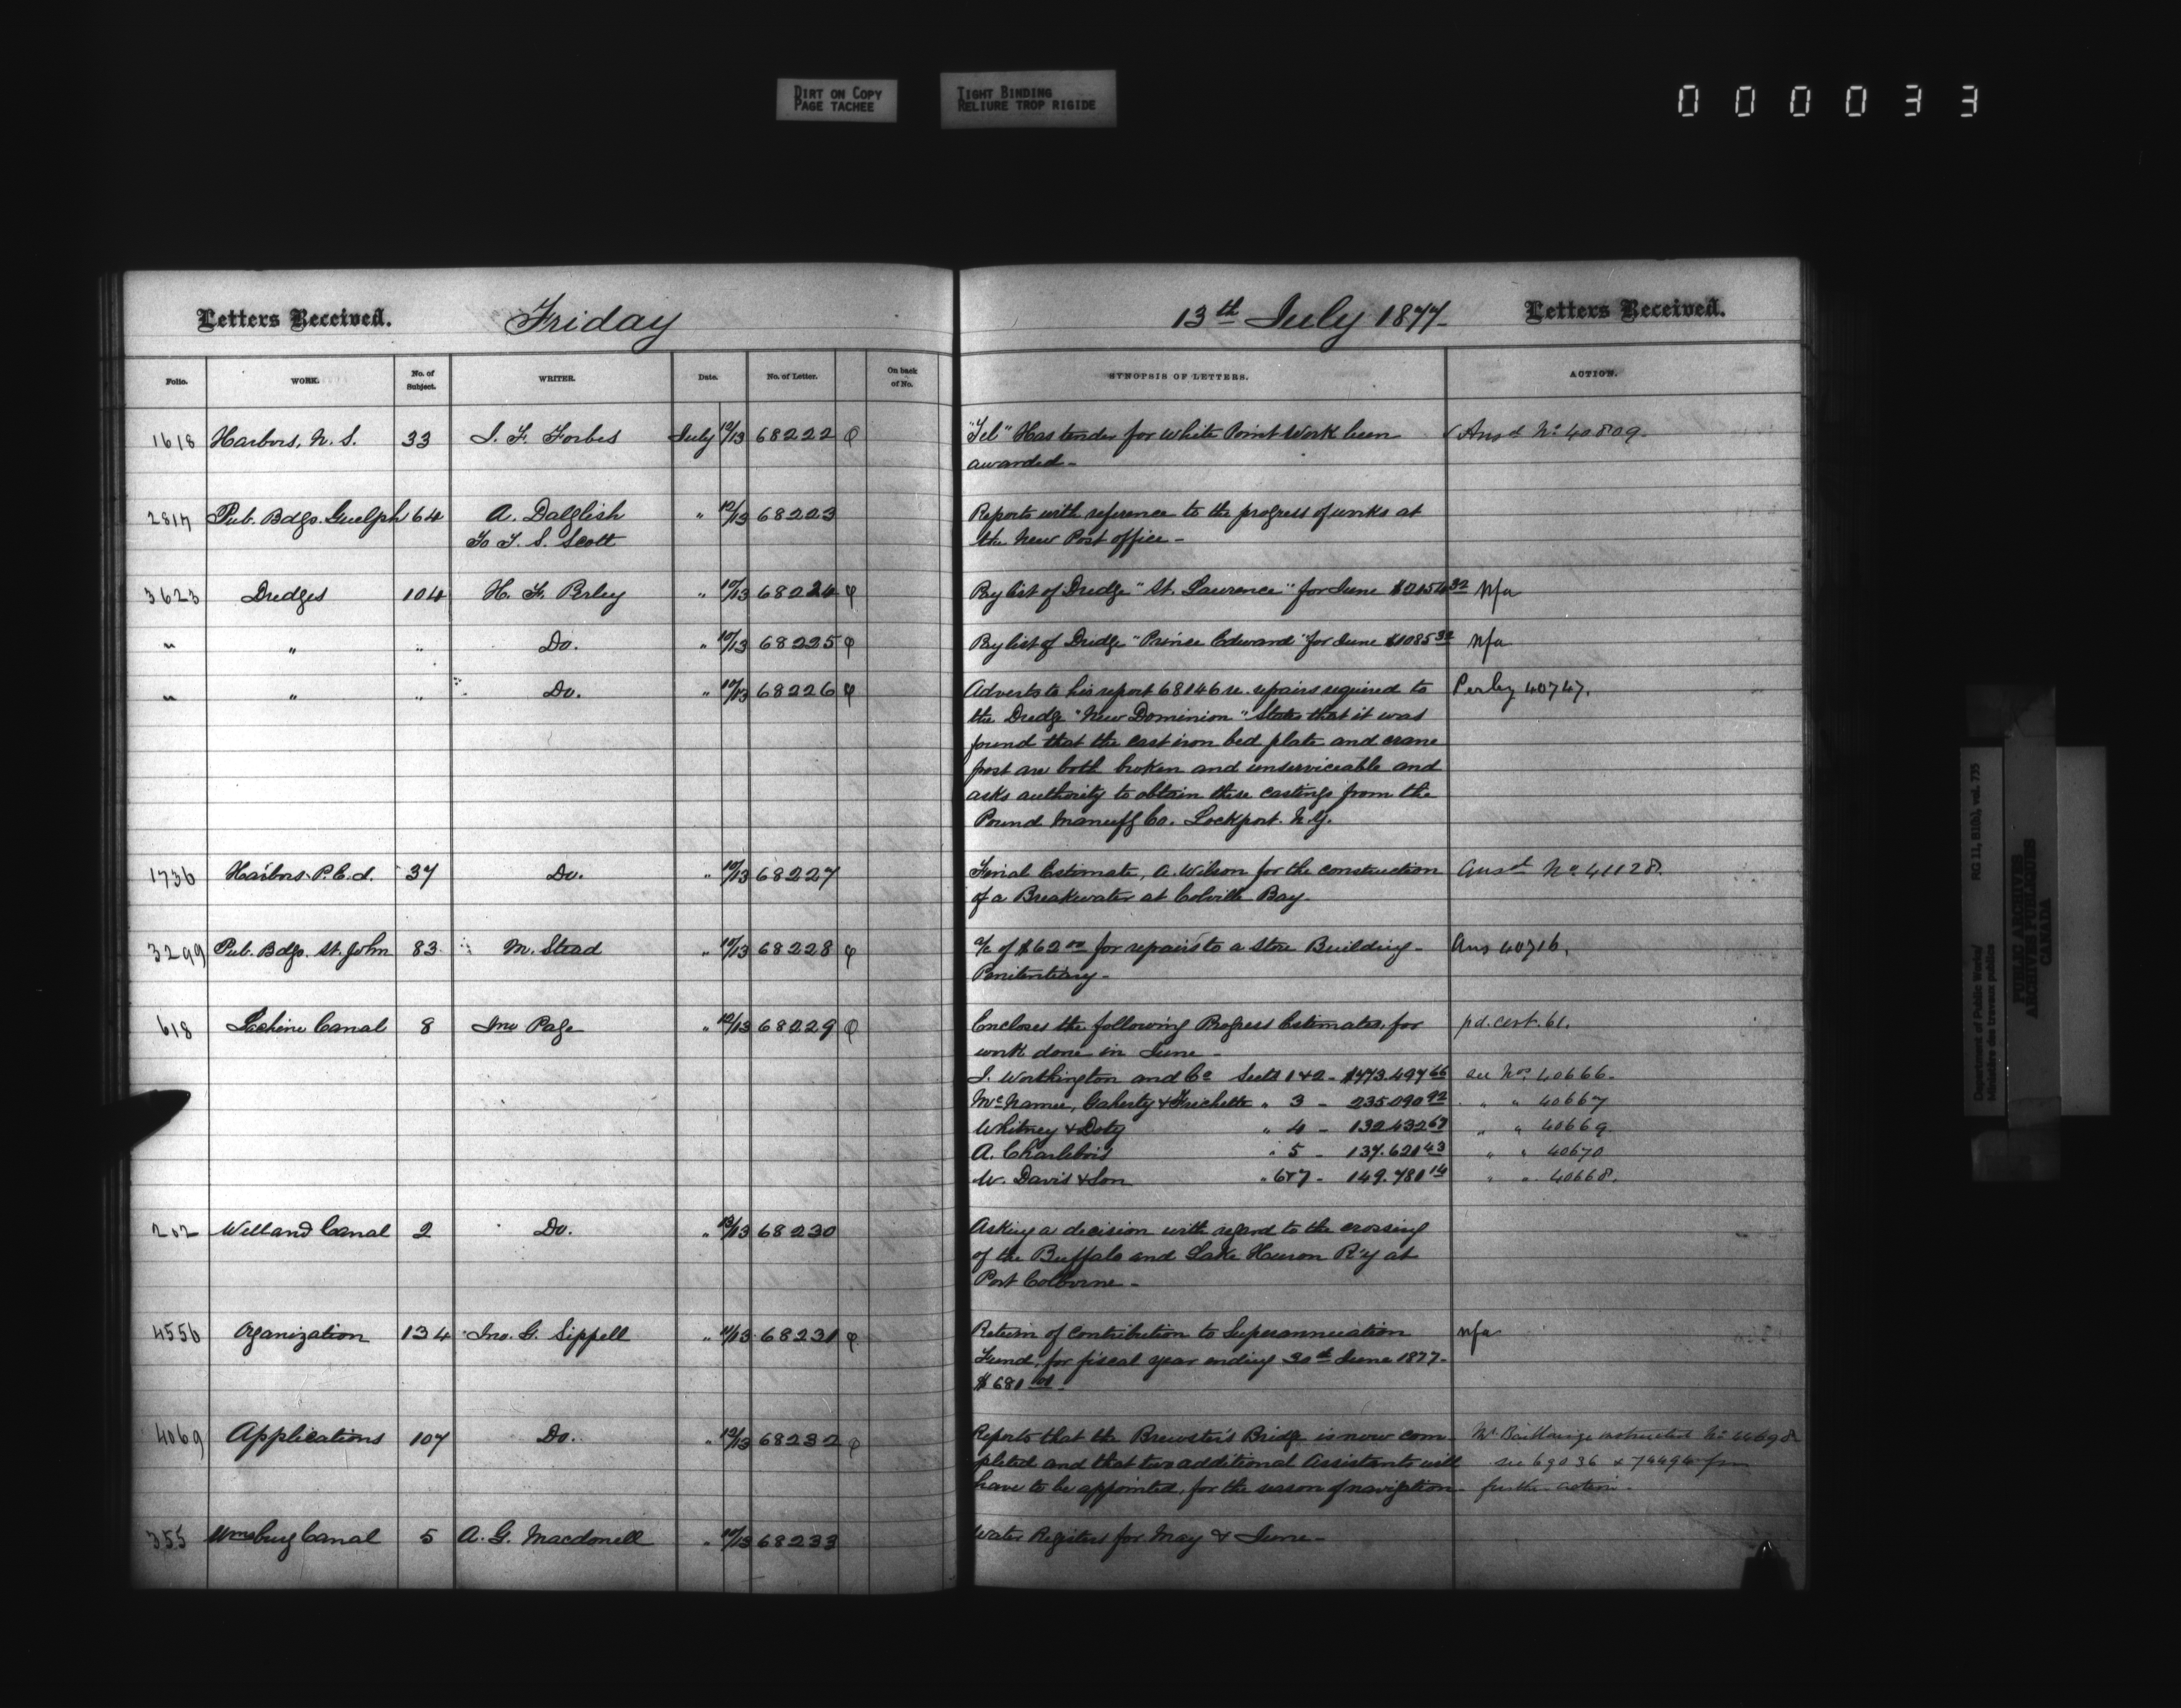 DIRT ON COPY
PAGE TACHEE
TIGHT BINDING
RELIURE TROP RIGIDE
000033
Letters Received. Friday 13th July 1877- Letters Received.
Folio. WORK. No. of Subject. WRITER. Date. No. of Letter. On back of No. SYNOPSIS OF LETTERS. ACTION.
1618 Harbors, N. S. 33 J. F. Forbes July 12/13 68222 φ "Tel" Has tender for White Point Work been Ansd No 40809.
awarded-
2817 Pub. Bdgs. Guelph 64 A. Dalglish " 12/13 68223 Reports with reference to the progress of works at
To T. S. Scott the New Post office-
3623 Dredges 104 H. F. Perley " 10/13 68224 φ Paylist of Dredge "St. Lawrence" for June N/a
" " " Do. " 10/13 68225 φ Paylist of Dredge "Prince Edward" for June $1085 32 N/a
" " " Do. " 10/13 68226 φ Adverts to his report 68146 re. repairs required to Perley 40747.
the Dredge "New Dominion" States that it was
found that the cast iron bed plate and crane
post are both broken and unserviceable and
asks authority to obtain these castings from the
Pound Manufg Co. Lockport. N.Y.
1736 Harbors P.E.I. 37 Do. " 10/13 68227 Final Estimate, A. Wilson for the construction Ansd No 41128.
of a Breakwater at Colville Bay.
3299 Pub. Bdgs. St. John 83 M. Stead " 10/13 68228 φ a/c of $62 00 for repairs to a store Building- Ans 40716.
Penitentiary-
618 Lachine Canal 8 Jno Page " 12/13 68229 φ Encloses the following Progress Estimates, for pd. cert. 61.
work done in June-
J. Worthington and Co Sects 1&2- $473.497 66 see Nos 40666.
McNamee, Gaherty & Frechette " 3 - 235090 92 " " 40667
Whitney & Doty " 4 - 132432 67 " " 40669
A. Charlebois " 5 - 137.621 43 " " 40670
W. Davis & Son " 6&7 - 149.781 14 " " 40668.
202 Welland Canal 2 Do. " 12/13 68230 Asking a decision with regard to the crossing
of the Buffalo and Lake Huron R'y at
Port Colborne-
4556 Oganization 134 Jno. G. Sippell " 11/13 68231 φ Return of Contribution to Superannuation N/a
Fund, for fiscal year ending 30th June 1877-
$681
4069 Applications 107 Do. " 12/13 68232 φ Reports that the Brewster's Bridge is now com- Mr Baillairge instructed No
pleted and that two additional Assistants will see 69036 & 74494 for
have to be appointed, for the season of navigation- further action.
355 Wmsburg Canal 5 A. G. Macdonell " 10/13 68233 Water Registers for May & June-
Department of Public Works/
Ministère des travaux publics
RG 11, B1(b), vol. 735
PUBLIC ARCHIVES
ARCHIVES PUBLIQUES
CANADA